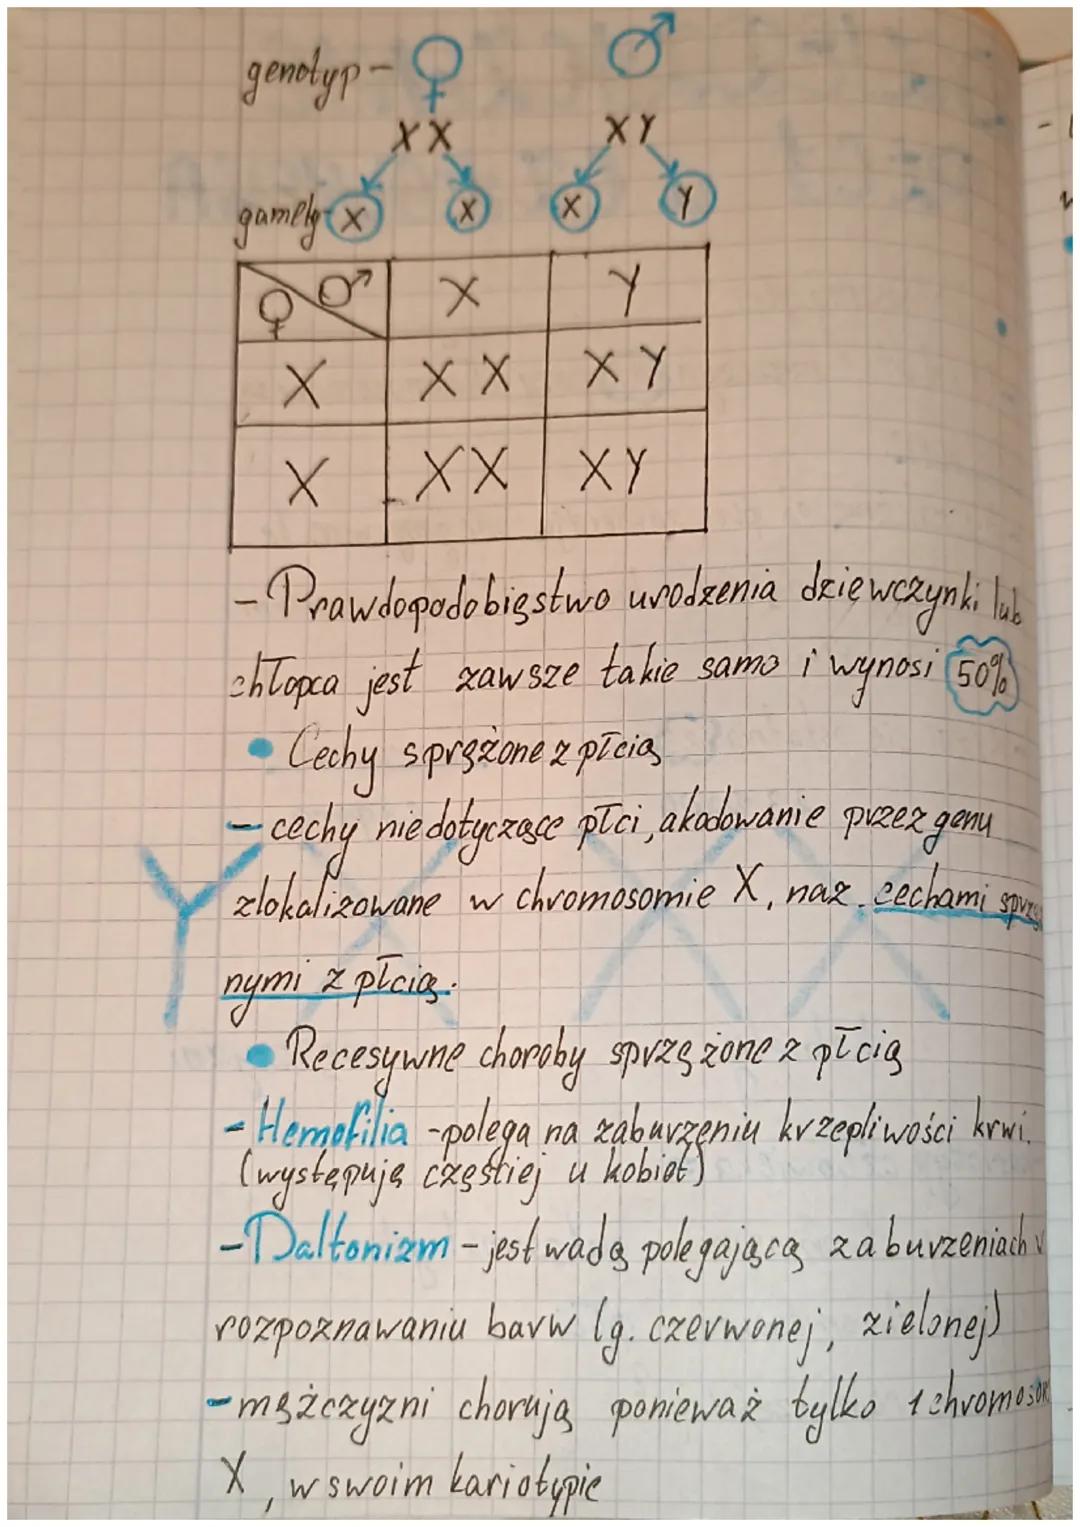 genotyp - ♀ ♂
XX XY
gamety - X X X Y
♀ ♂ X Y
X XX XY
X XX XY
- Prawdopodobięstwo urodzenia dziewczynki lub
chłopca jest zawsze takie samo i wynosi 50%
• Cechy sprężone z płcią
- cechy niedotyczące płci, akodowanie przez genu
zlokalizowane w chromosomie X, naz. cechami sprzę
nymi z płcią.
• Recesywne choroby sprzężone z płcią
- Hemofilia - polega na zaburzeniu krzepliwości krwi.
(występuję częściej u kobiet)
- Daltonizm - jest wadą polegającą zaburzeniach w
rozpoznawaniu barw (g. czerwonej, zielonej)
- mężczyzni chorują ponieważ tylko 1 chromosom
X, w swoim kariotypie